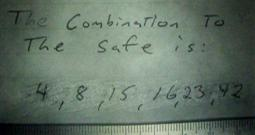 The Combination To
The Safe is:
4, 8, 15, 16, 23, 42